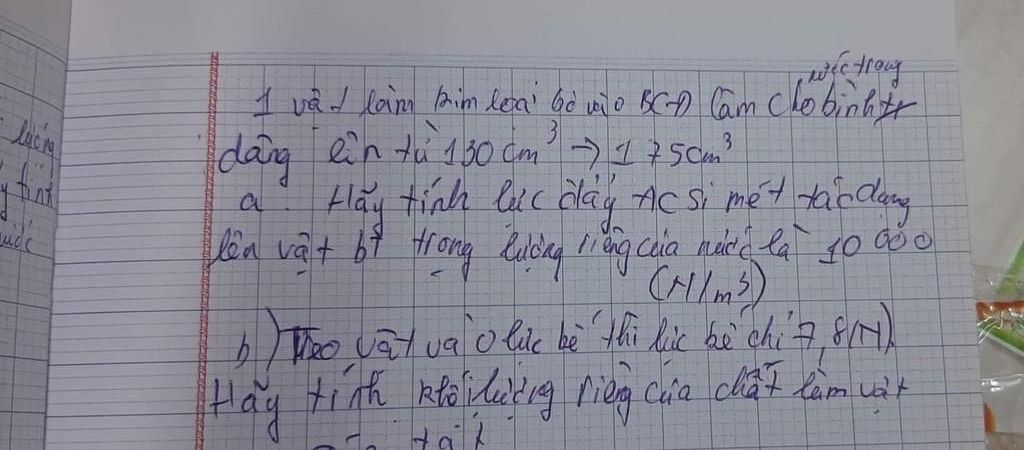 nước trong
1 vật làm kim loại bỏ vào BCĐ làm cho bình
dâng lên từ 130 cm³ → 175cm³
a. Hãy tính lực đẩy Ác Si mét tác dụng
lên vật bt trọng lượng riêng của nước là 10 000
(N/m³)
b) Treo vật vào lực kế thì lực kế chỉ 7,8(N)
Hãy tính khối lượng riêng của chất làm vật
lượng
tính
nước